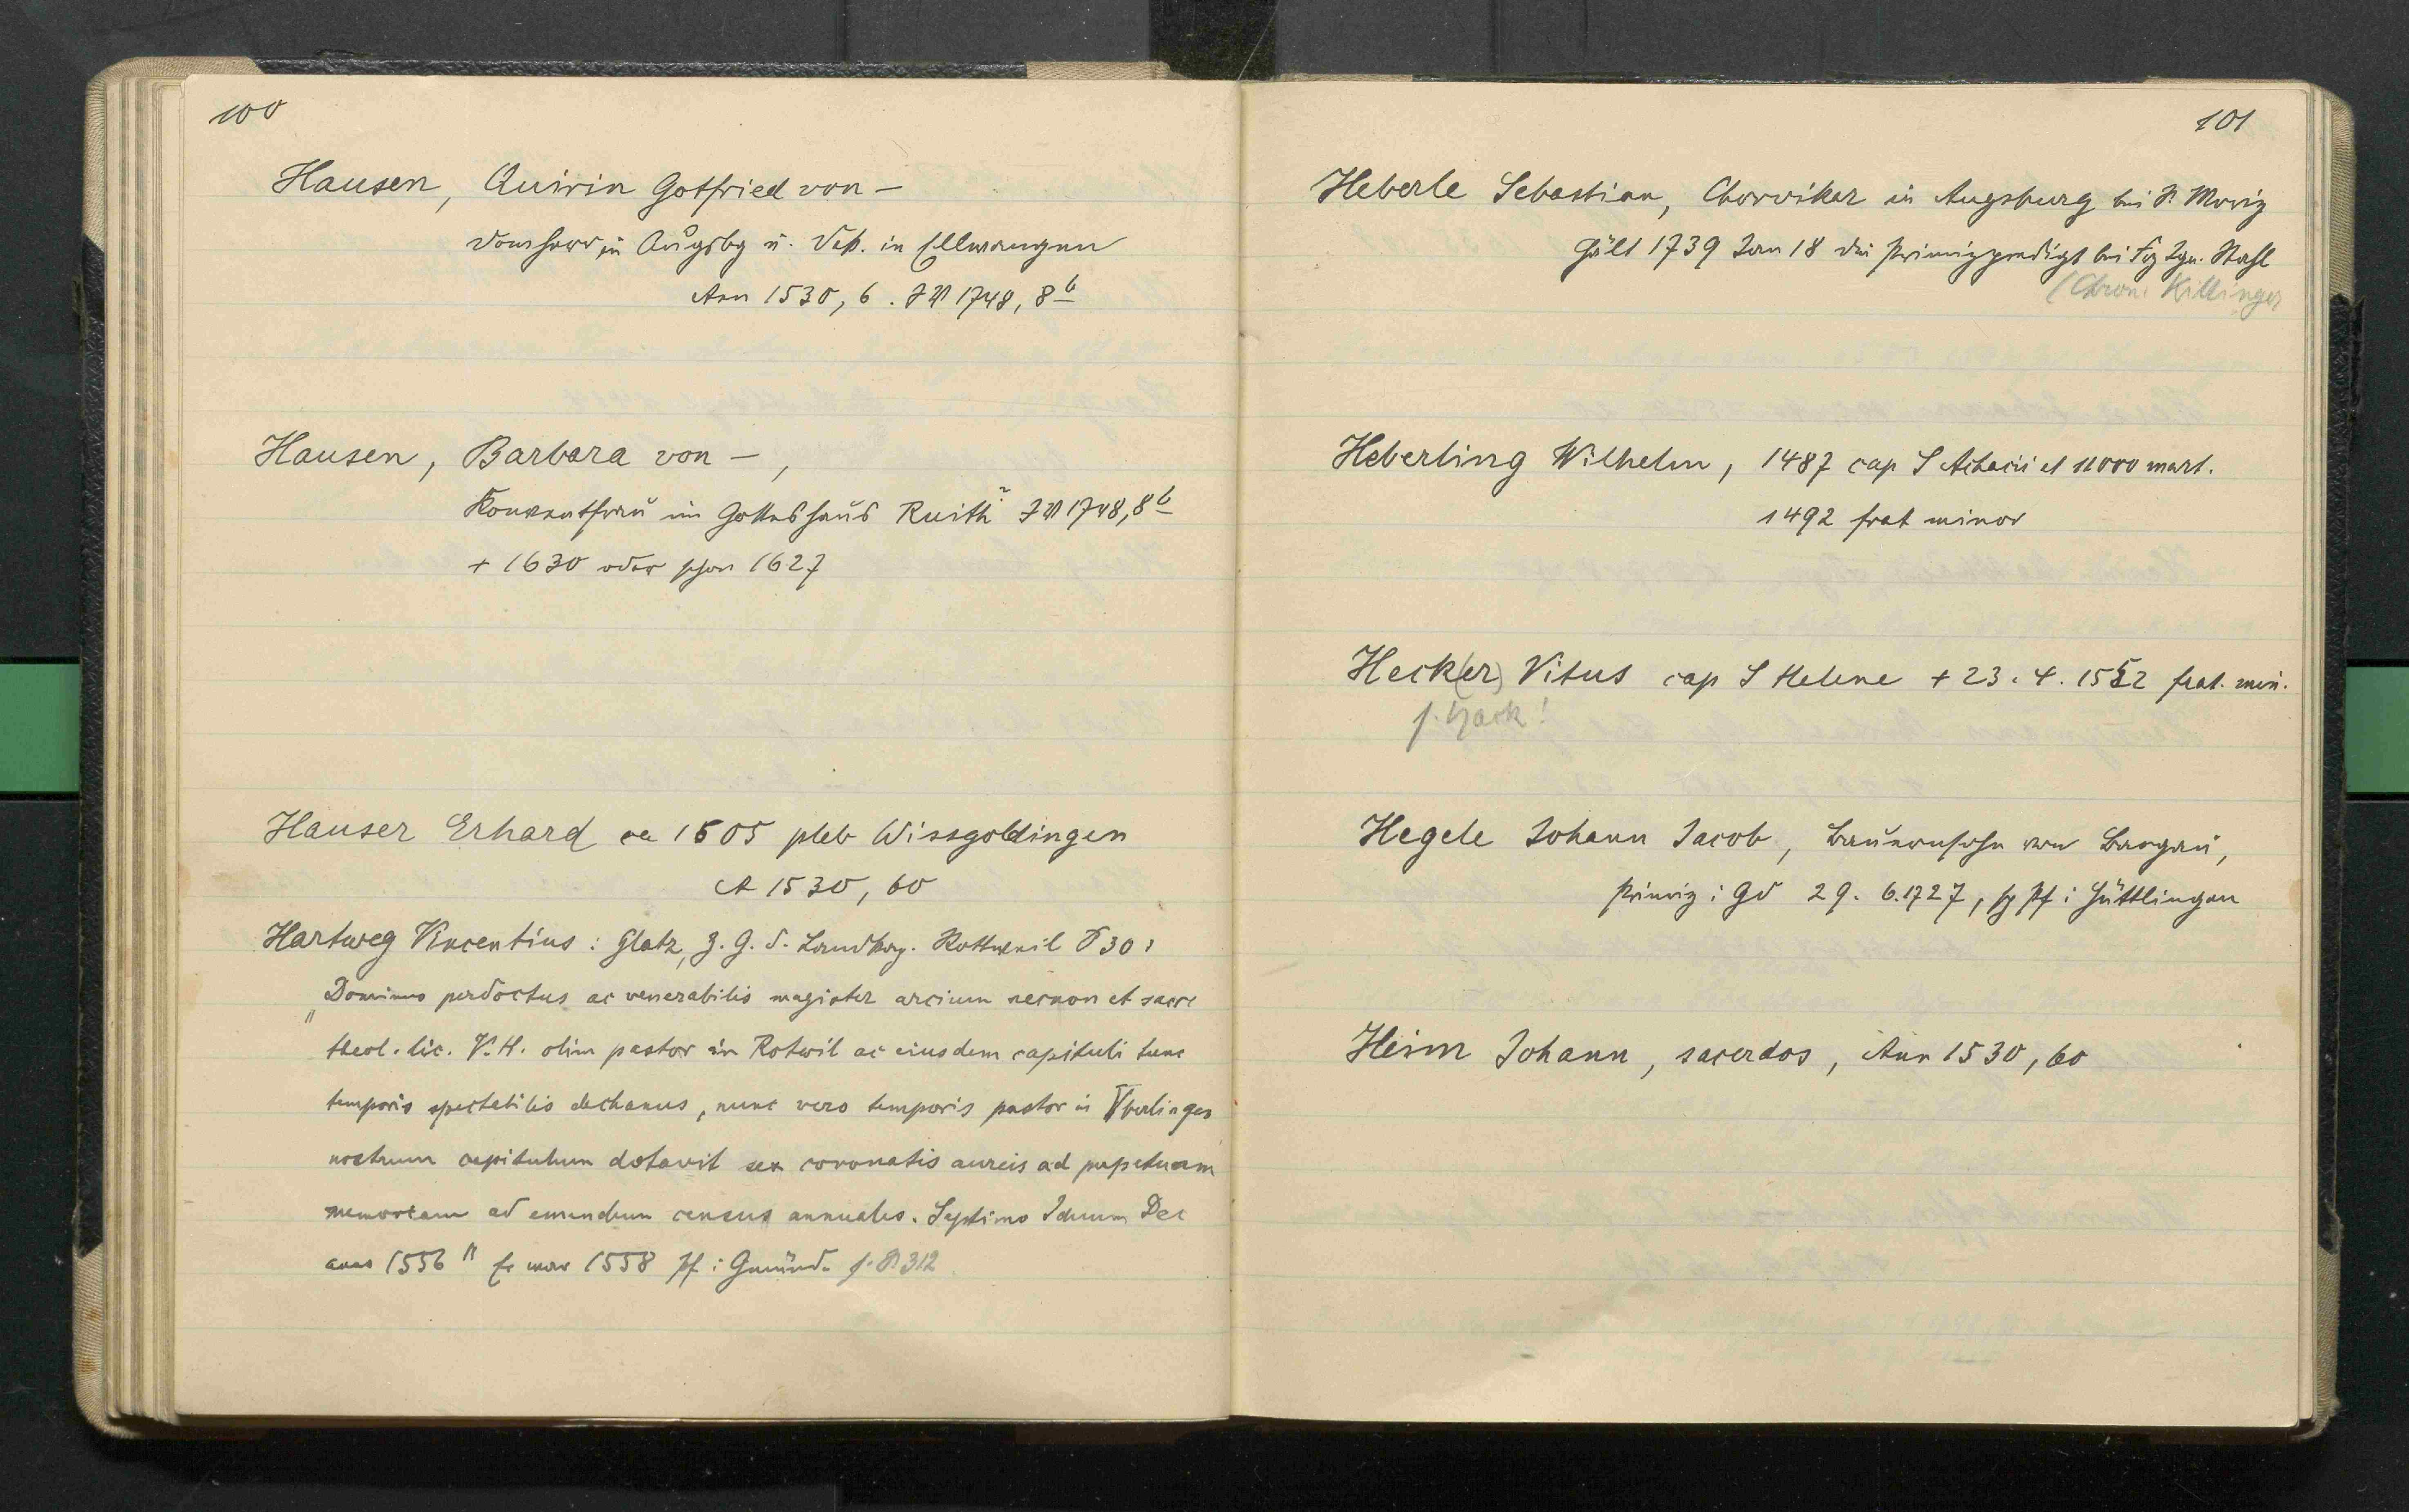 100
Hausen, Quirin Gotfried von –
Domherr in Augsbg u. Dek. in Ellwangen
Ann 1530, 6. 1748, 8 b
Hausen, Barbara von –,
Konventfrau im Gotteshaus Ruith 1748, 8 b
+ 1630 oder schon 1627
Hauser Erhard ca 1505 pleb Wissgoldingen
A 1530, 60
Hartweg Vincentius: Glatz, z. G. d. Landkap. Rottweil S 30:
„Dominus perdoctus ac venerabilis magister arcium necnon et sacre
theol. lic. V. H. olim pastor in Rotwil ac eiusdem capituli tunc
temporis spectabilis dechanus, nunc vero temporis pastor in Vberlingen
nostrum capitulum dotavit sex coronatis aureis ad perpetuam
memoriam ad emendum census annuales. Septimo Iduum Dec
anno 1556" Er war 1558 Pf i Gmünd. s. 312
101
Heberle Sebastian, Chorvikar in Augsburg bei St. Moriz
hält 1739 Jan 18 die Primizpredigt bei Frz Ign. Stahl
(Chron. Killinger
Heberling Wilhelm, 1487 cap S Achacii et 11000 mart.
1492 frat minor
Heck(er) Vitus cap S Helene + 23. 4. 1552 frat. min.
s. Hack!
Hegele Johann Jacob, Bauernsohn von Bargau,
Primiz i Gd 29. 6. 1727, Pf i Hüttlingen
Heim Johann, sacerdos, Ann 1530, 60